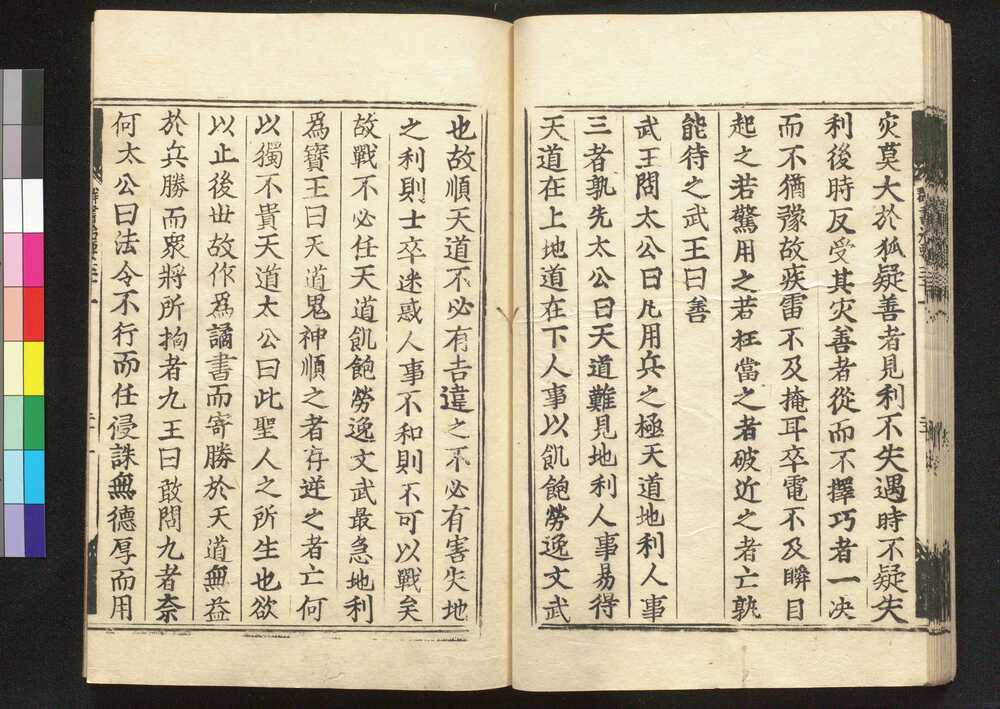 灾莫大於狐疑善者見利不失遇時不疑失
利後時反受其灾善者從而不擇巧者一决
而不猶豫故疾雷不及掩耳卒電不及瞬目
起之若驚用之若狂當之者破近之者亡孰
能待之武王曰善
武王問太公曰凡用兵之極天道地利人事
三者孰先太公曰天道難見地利人事易得
天道在上地道在下人事以飢飽勞逸文武
也故順天道不必有吉違之不必有害失地
之利則士卒迷惑人事不和則不可以戰矣
故戰不必任天道飢飽勞逸文武最急地利
爲寶王曰天道鬼神順之者存逆之者亡何
以獨不貴天道太公曰此聖人之所生也欲
以止後世故作爲譎書而寄勝於天道無益
於兵勝而衆將所拘者九王曰敢問九者奈
何太公曰法令不行而任侵誅無德厚而用